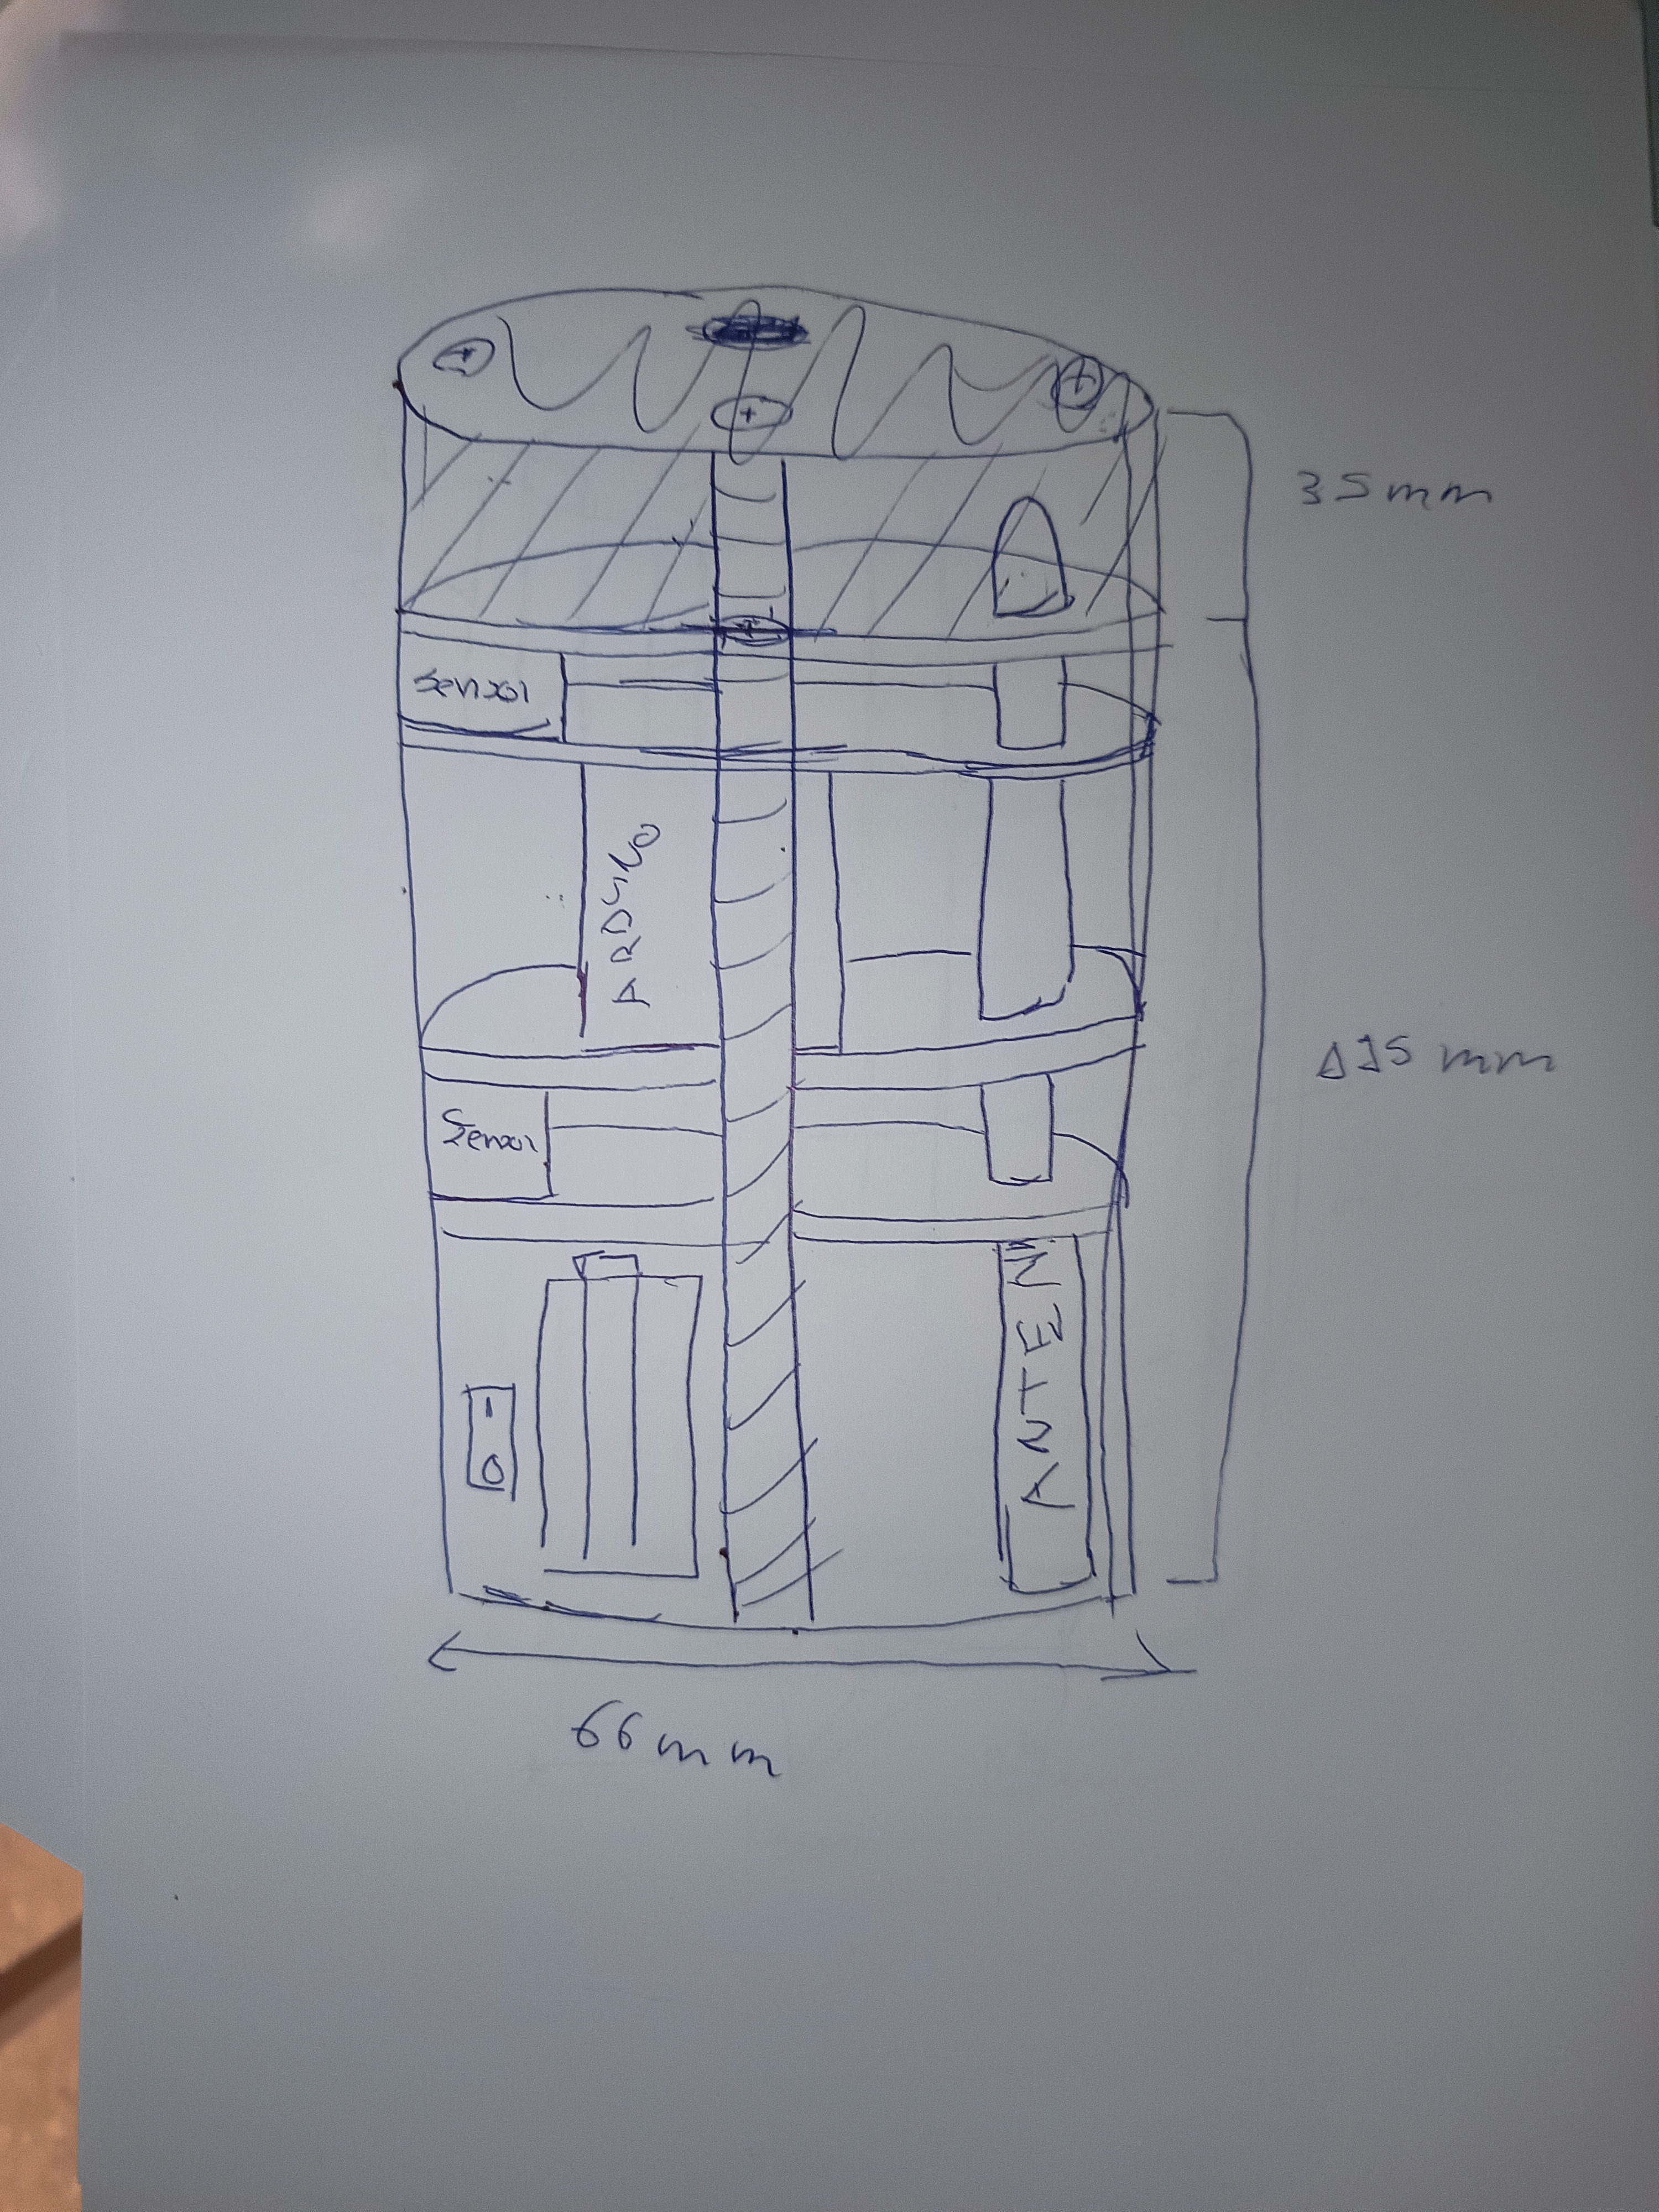 35mm
Sensor
ARDUINO
115 mm
Sensor
ANTEN
66mm